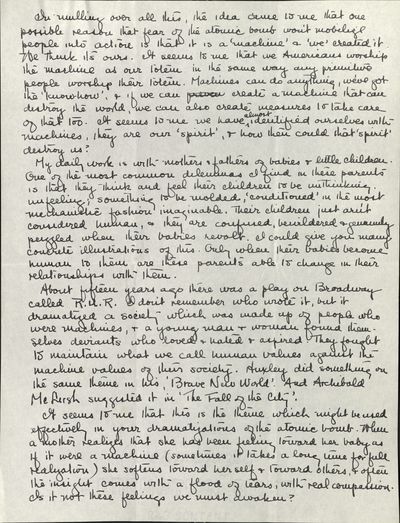 In mulling over all this, the idea came to me that one
possible reason that fear of the atomic bomb won't mobilize
people into action is that it is a 'machine' & 'we' created it.
We think it's ours. It seems to me that we Americans worship
the machine as our totem in the same way any primitive
people worship their totem. Machines can do anything, we've got
the 'know how', & if we can create a machine that can
destroy the world, we can also create measures to take care
of that too. It seems to me we have almost identified ourselves with
machines, they are our 'spirit', & how then could that 'spirit'
destroy us?
My daily work is with mothers & fathers of babies & little children.
One of the most common dilemmas I find in these parents
is that they think and feel their children to be unthinking,
unfeeling, something to be molded, 'conditioned' in the most
mechanistic fashion imaginable. Their children just aint
considered human, & they are confused, bewildered & genuinely
puzzled when their babies revolt. I could give you many
concrete illustrations of this. Only when their babies become
human to them are these parents able to change in their
relationships with them.
About fifteen years ago there was a play on Broadway
called R.U.R. I don't remember who wrote it, but it
dramatized a society which was made up of people who
were machines, & a young man & woman found them-
selves deviants who loved & hated & aspired. They fought
to maintain what we call human values against the
machine values of their society. Huxley did something on
the same theme in his, 'Brave New World'. And Archibald
McLeish suggested it in 'The Fall of the City'.
It seems to me that this is the theme which might be used
effectively in your dramatizations of the atomic bomb. When
a mother realizes that she has been feeling toward her baby as
if it were a machine (sometimes it takes a long time for full
realization) she softens toward herself & toward others, & often
the insight comes with a flood of tears, with real compassion.
Is it not these feelings we must awaken?